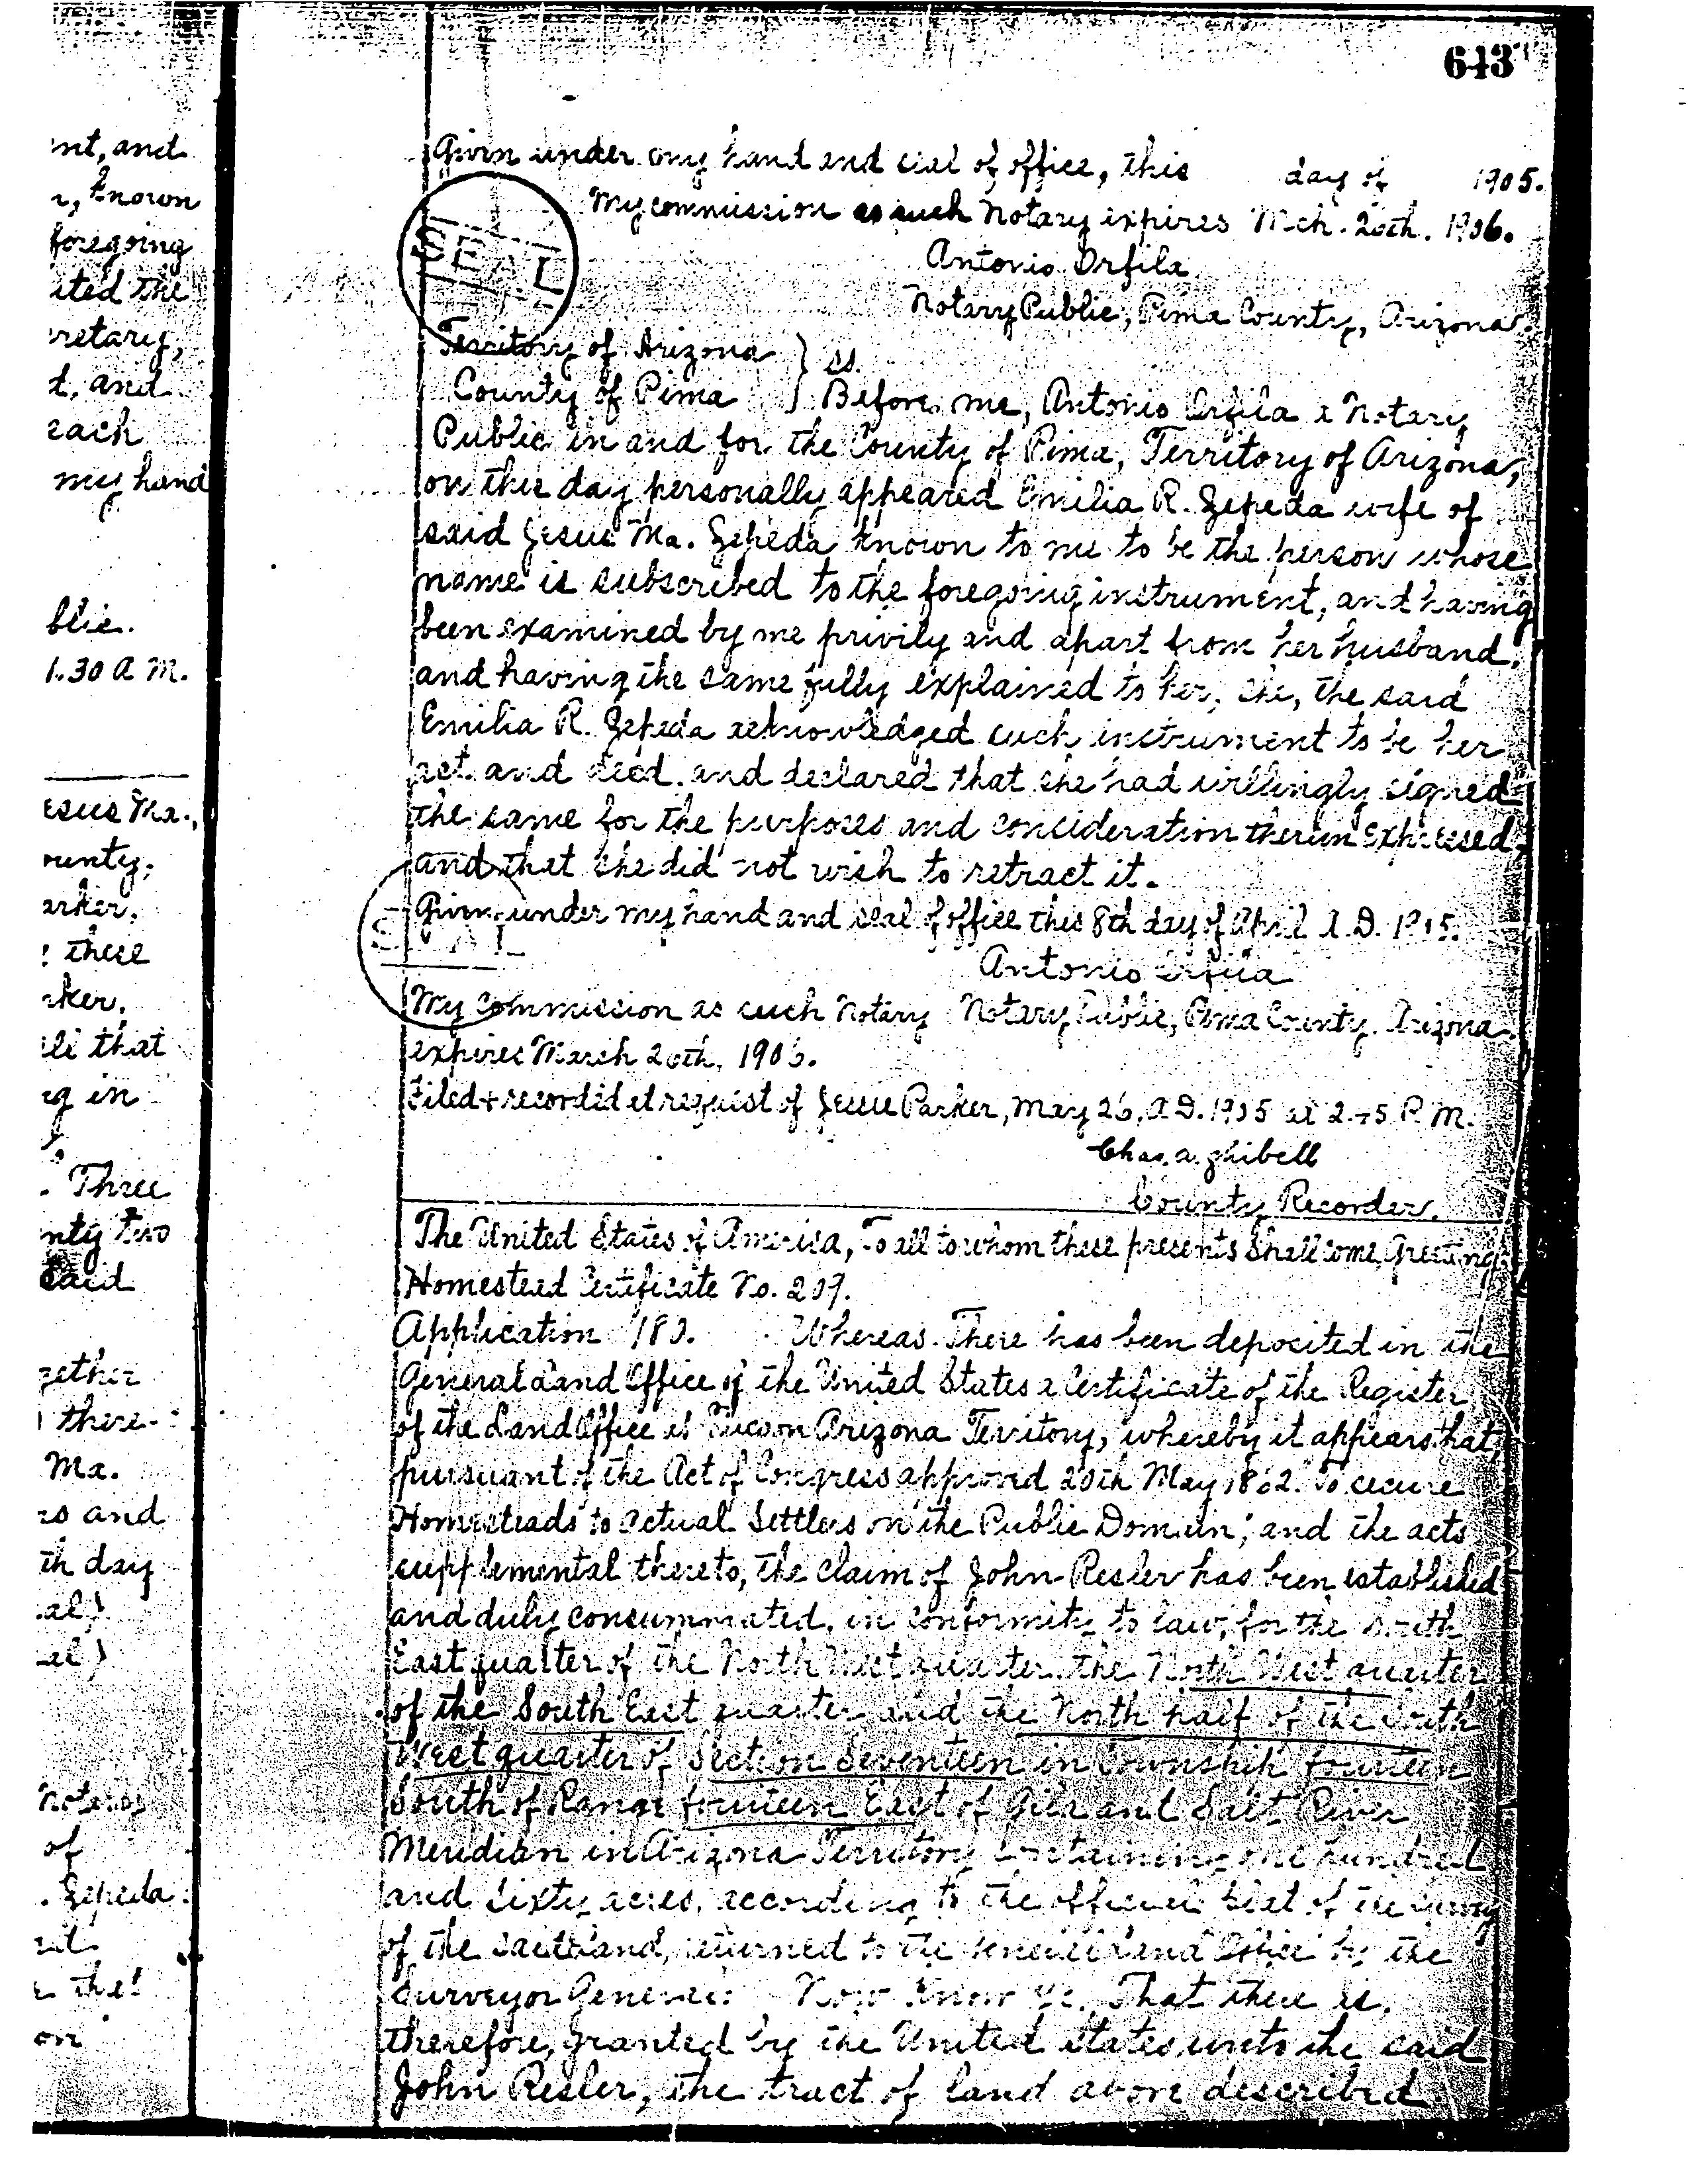 643
nt, and
r, known
foregoing
uted the
retary,
t, and
each
my hand
blic.
1.30 A M.
esus Ma.,
ounty,
arker,
these
rker,
that
in
Three
nty two
Said
gether
there-
Ma.
rs and
th day
al)
al)
of
. Zepeda
the
on
Given under my hand and seal of office, this day of 1905.
My commission as such Notary expires Mch. 20th. 1906.
SEAL
Antonio Orfila
Notary Public, Pima County, Arizona.
Territory of Arizona } ss.
County of Pima } Before me, Antonio Orfila a Notary
Public in and for the County of Pima, Territory of Arizona,
on this day personally appeared Emilia R. Zepeda wife of
said Jesus Ma. Zepeda known to me to be the person whose
name is subscribed to the foregoing instrument, and having
been examined by me privily and apart from her husband,
and having the same fully explained to her, she, the said
Emilia R. Zepeda acknowledged such instrument to be her
act and deed and declared that she had willingly signed
the same for the purposes and consideration therein expressed,
and that she did not wish to retract it.
Given under my hand and seal of office this 8th day of April A.D. 1905.
SEAL
Antonio Orfila
My commission as such Notary Notary Public, Pima County, Arizona
expires March 20th, 1906.
Filed & recorded at request of Jesus Parker, May 26, A.D. 1905 at 2.45 P.M.
Chas. A. Shibell
County Recorder.
The United States of America, To all to whom these presents Shall come, Greeting:
Homestead Certificate No. 209.
Application 180. Whereas There has been deposited in the
General Land Office of the United States a Certificate of the Register
of the Land Office at Tucson Arizona Territory, whereby it appears that,
pursuant of the Act of Congress approved 20th May 1862. To secure
Homesteads to actual Settlers on the Public Domain; and the acts
supplemental thereto, the claim of John Resler has been established
and duly consummated, in conformity to law, for the South
East quarter of the North West quarter, the North West quarter
of the South East quarter and the North half of the South
West quarter of Section Seventeen in Township fourteen
South of Range fourteen East of Gila and Salt River
Meridian in Arizona Territory containing one hundred
and sixty acres, according to the official Plat of the survey
of the said Land, returned to the General Land Office by the
Surveyor General: Now Know Ye, That there is,
therefore, granted by the United States unto the said
John Resler, the tract of land above described